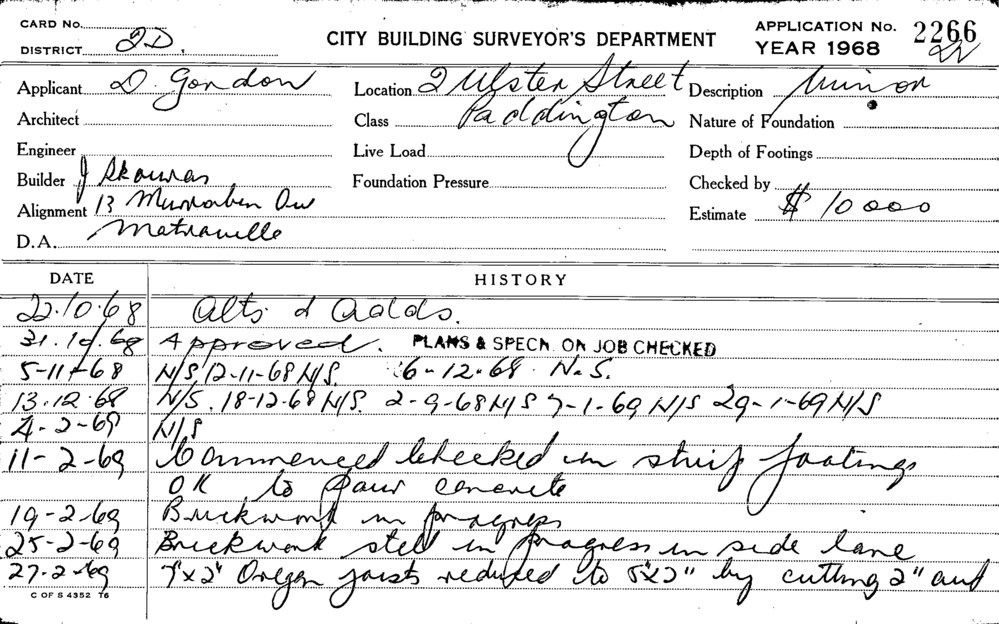 CARD No.
DISTRICT 2D.
CITY BUILDING SURVEYOR'S DEPARTMENT
APPLICATION No. 2266
YEAR 1968 22
Applicant D. Gordon
Location 2 Ulster Street
Description Minor
Architect
Class Paddington
Nature of Foundation
Engineer
Live Load
Depth of Footings
Builder J Skouras
Foundation Pressure
Checked by
Alignment 13 Murrabin Ave
Estimate $ 10 000
D.A. Matraville
DATE HISTORY
22.10.68 Alts & Adds.
31.10.68 Approved. PLANS & SPECN. ON JOB CHECKED
5-11-68 N/S 12-11-68 N/S. 6-12-68 N.S.
13.12.68 N/S. 18-12-68 N/S. 2-9-68 N/S 7-1-69 N/S 29-1-69 N/S
4-2-69 N/S
11-2-69 Commenced Checked in strip footings
OK to pour concrete
19-2-69 Brickwork in progress
25-2-69 Brickwork still in progress in side lane
27.2.69 7"x2" Oregon joists reduced to 5"x2" by cutting 2" and
C OF S 4352 T6